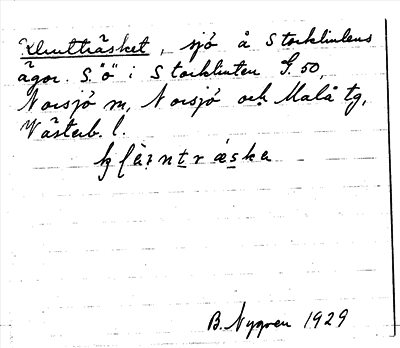 Klintträsket, sjö å Storklintens
ägor. S. ö i Storklinten G. 50,
Norsjö m, Norsjö och Malå tg,
Västerb. l.
B. Nygren 1929